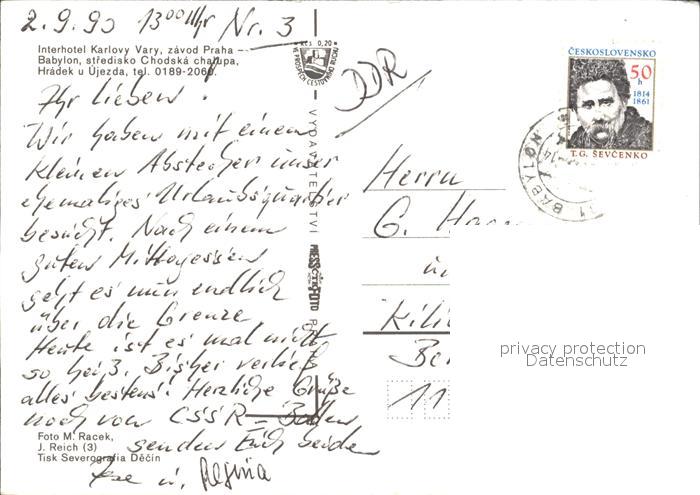 2.9.90 13⁰⁰ Uhr Nr. 3
Interhotel Karlovy Vary, závod Praha –
Babylon, středisko Chodská chalupa,
Hrádek u Újezda, tel. 0189-2069.
Kčs 0,20
VE PROSPĚCH CESTOVNÍHO RUCHU
Ihr Lieben!
Wir haben mit einem
kleinen Abstecher unser
ehemaliges Urlaubsquartier
besucht. Nach einem
guten Mittagessen
geht es nun endlich
über die Grenze.
Heute ist es mal nicht
so heiß. Bisher verlief
alles bestens! Herzliche Grüße
noch vom ČSSR – Boden
senden Euch beide
u. Regina
Foto M. Racek,
J. Reich (3)
Tisk Severografia Děčín
VYDAVATELSTVÍ
PRESSFOTO
DDR
ČESKOSLOVENSKO
50 h
1814
1861
T.G. ŠEVČENKO
BABYLON
Herrn
G.
11
privacy protection
Datenschutz